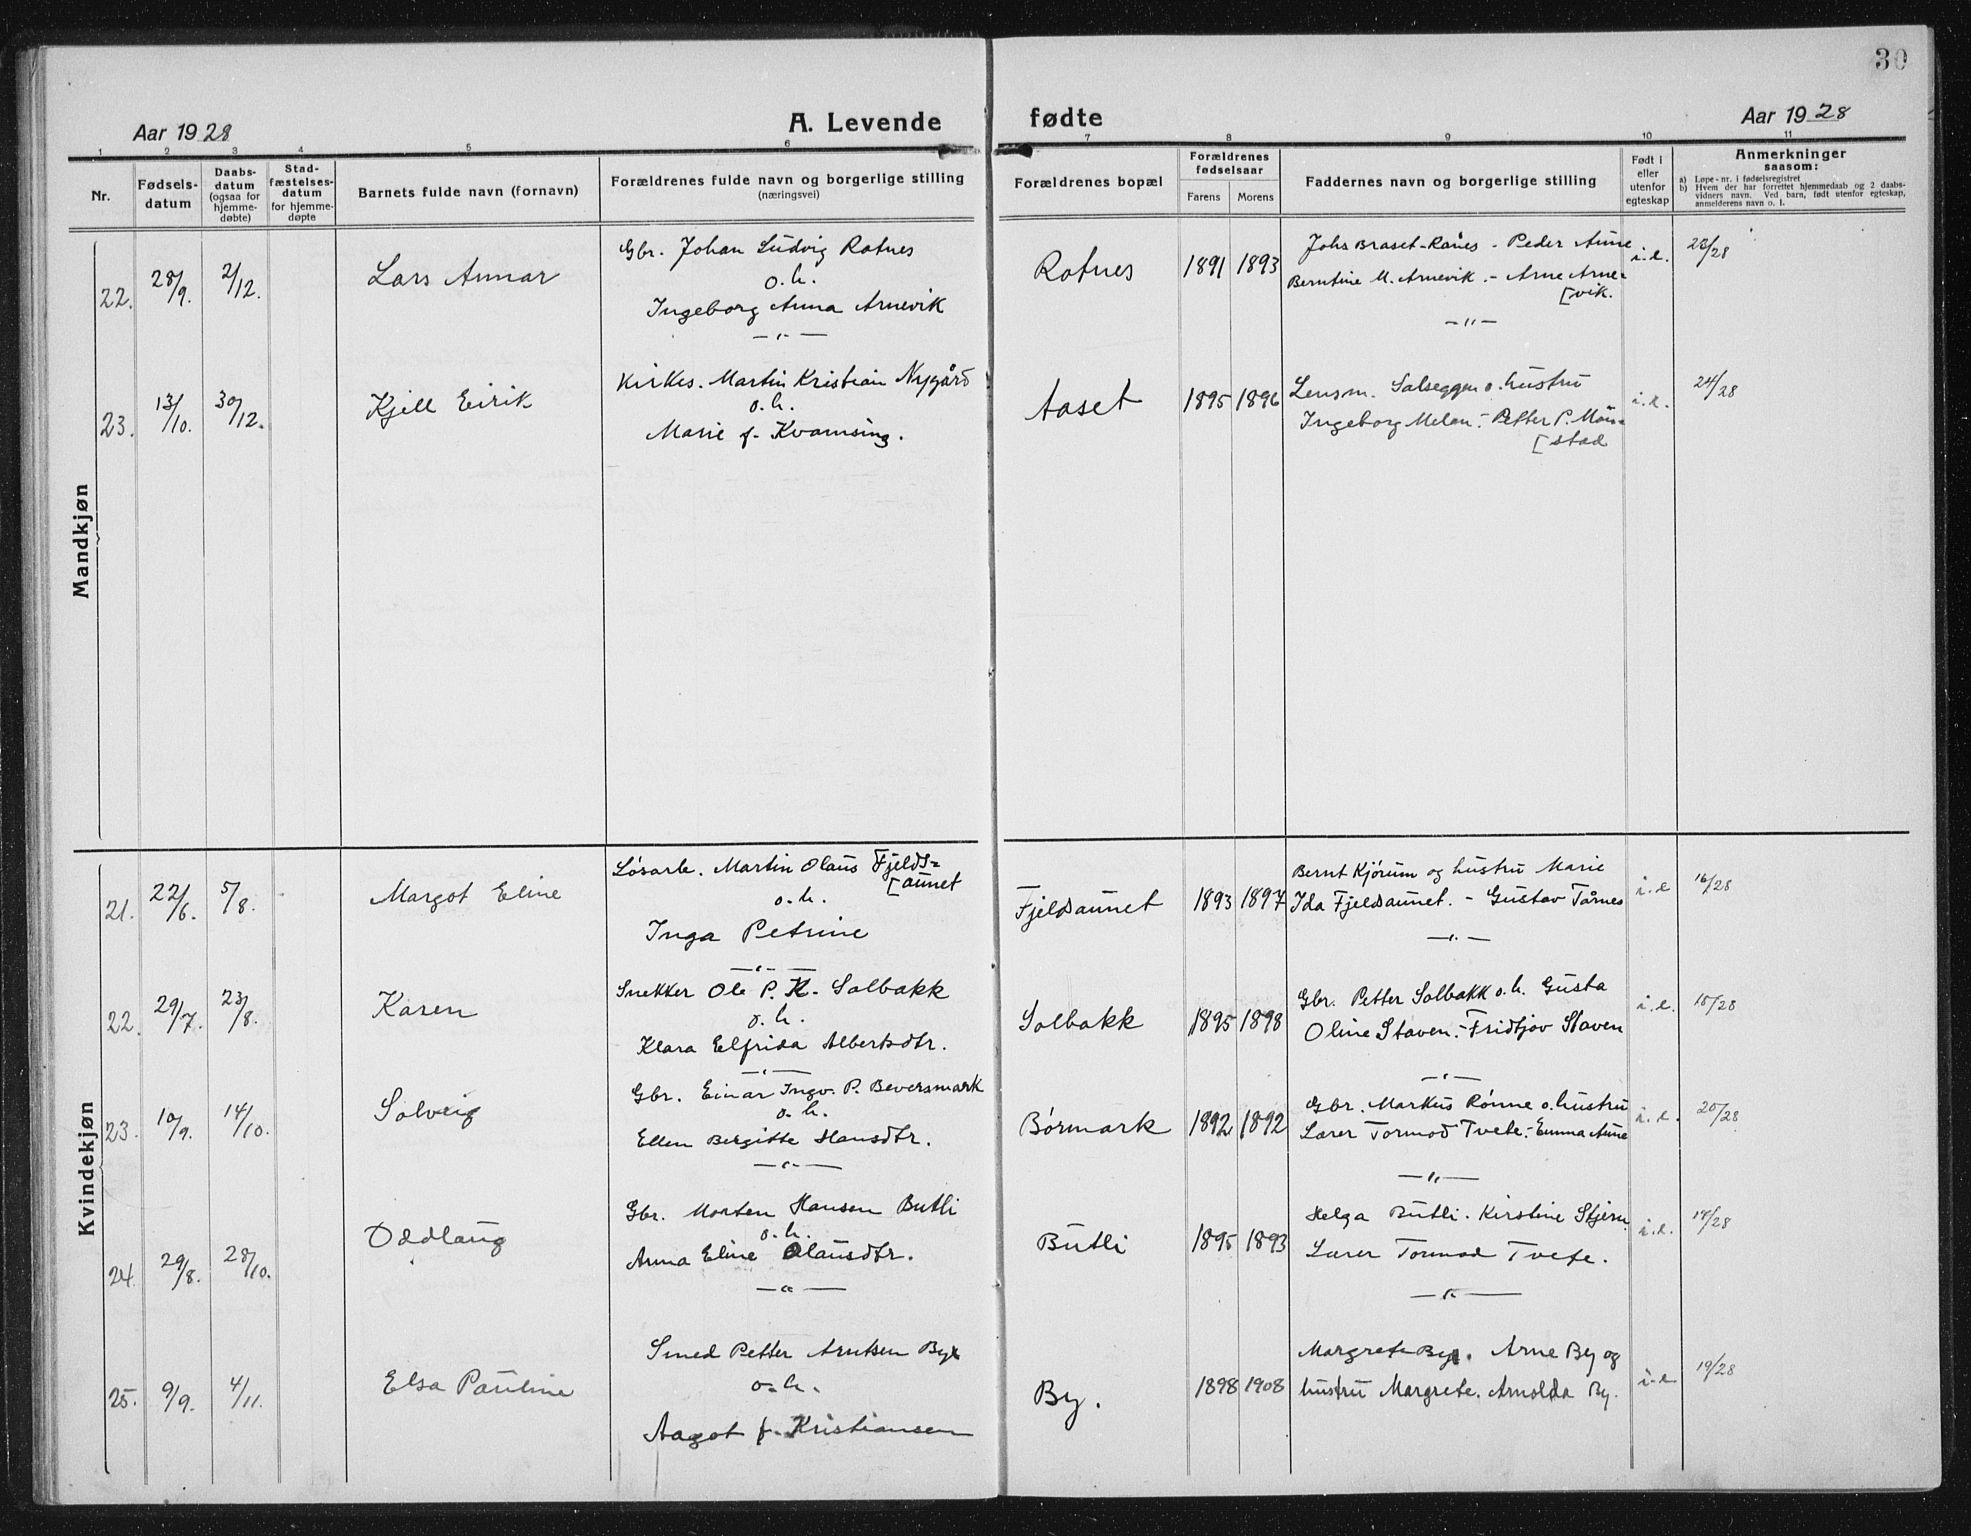 30
Aar 1928
A. Levende
fødte
Aar 1928
1 2 3 4 5 6 7 8 9 10 11
Nr.
Fødsels-
datum
Daabs-
datum
(ogsaa for
hjemme-
døbte)
Stad-
fæstelses-
datum
for hjemme-
døpte
Barnets fulde navn (fornavn)
Forældrenes fulde navn og borgerlige stilling
(næringsvei)
Forældrenes bopæl
Forældrenes
fødselsaar
Farens Morens
Faddernes navn og borgerlige stilling
Født i
eller
utenfor
egteskap
Anmerkninger
saasom:
a) Løpe-nr. i fødselsregistret
b) Hvem der har forrettet hjemmedaab og 2 daabs-
vidners navn. Ved barn, født utenfor egteskap,
anmelderens navn o. l.
Mandkjøn
22. 28/9. 2/12. Lars Annar
Gbr. Johan Ludvig Rotnes
o.h.
Ingeborg Anna Arnevik
—"—
Rotnes 1891 1893
Johs Braset-Rånes - Peder Aune
Berntine M. Arnevik. - Arne Arne-
[vik.
—"—
i.e. 23/28
23. 13/10. 30/12. Kjell Eirik
Kirkes. Martin Kristian Nygård
o.h.
Marie f. Kvamsing.
Aaset 1895 1896
Lensm. Salseggen o. hustru
Ingeborg Melan - Petter P. Mo
[stad
i.e. 24/28
Kvindekjøn
21. 22/6. 5/8. Margot Eline
Løsarb. Martin Olaus Fjelds-
[aunet
o.h.
Inga Petrine
—"—
Fjeldsaunet 1893 1897
Bernt Kjørum og hustru Marie
Ida Fjeldsaunet. - Gustav Tårnes
—"—
i.e 16/28
22. 29/7. 23/8. Karen
Snekker Ole P. K. Solbakk
o.h.
Klara Elfrida Albertsdtr.
—"—
Solbakk 1895 1898
Gbr. Petter Solbakk o.h. Gusta
Oline Staven. - Fridtjov Staven
—"—
i.e. 15/28
23. 10/9. 14/10. Solveig
Gbr. Einar Ingv. P. Beversmark
o.h.
Ellen Bergitte Hansdtr.
—"—
Børmark 1892 1892
Gbr. Markus Rønne o. hustru
Lærer Tormod Tvete. - Emma Aune
—"—
i.e. 20/28
24. 29/8. 28/10. Oddlaug
Gbr. Morten Hansen Butli
o.h.
Anna Eline Olausdtr.
—"—
Butli 1895 1893
Helga Butli. Kirstine Stjern
Lærer Tormod Tvete.
—"—
i.e. 18/28
25. 9/9. 4/11. Elsa Pauline
Smed Petter Arntsen By
o.h.
Aagot f. Kristiansen
By. 1898 1908
Margrete By. Arne By og
hustru Margrete. Arnolda By.
i.e 19/28